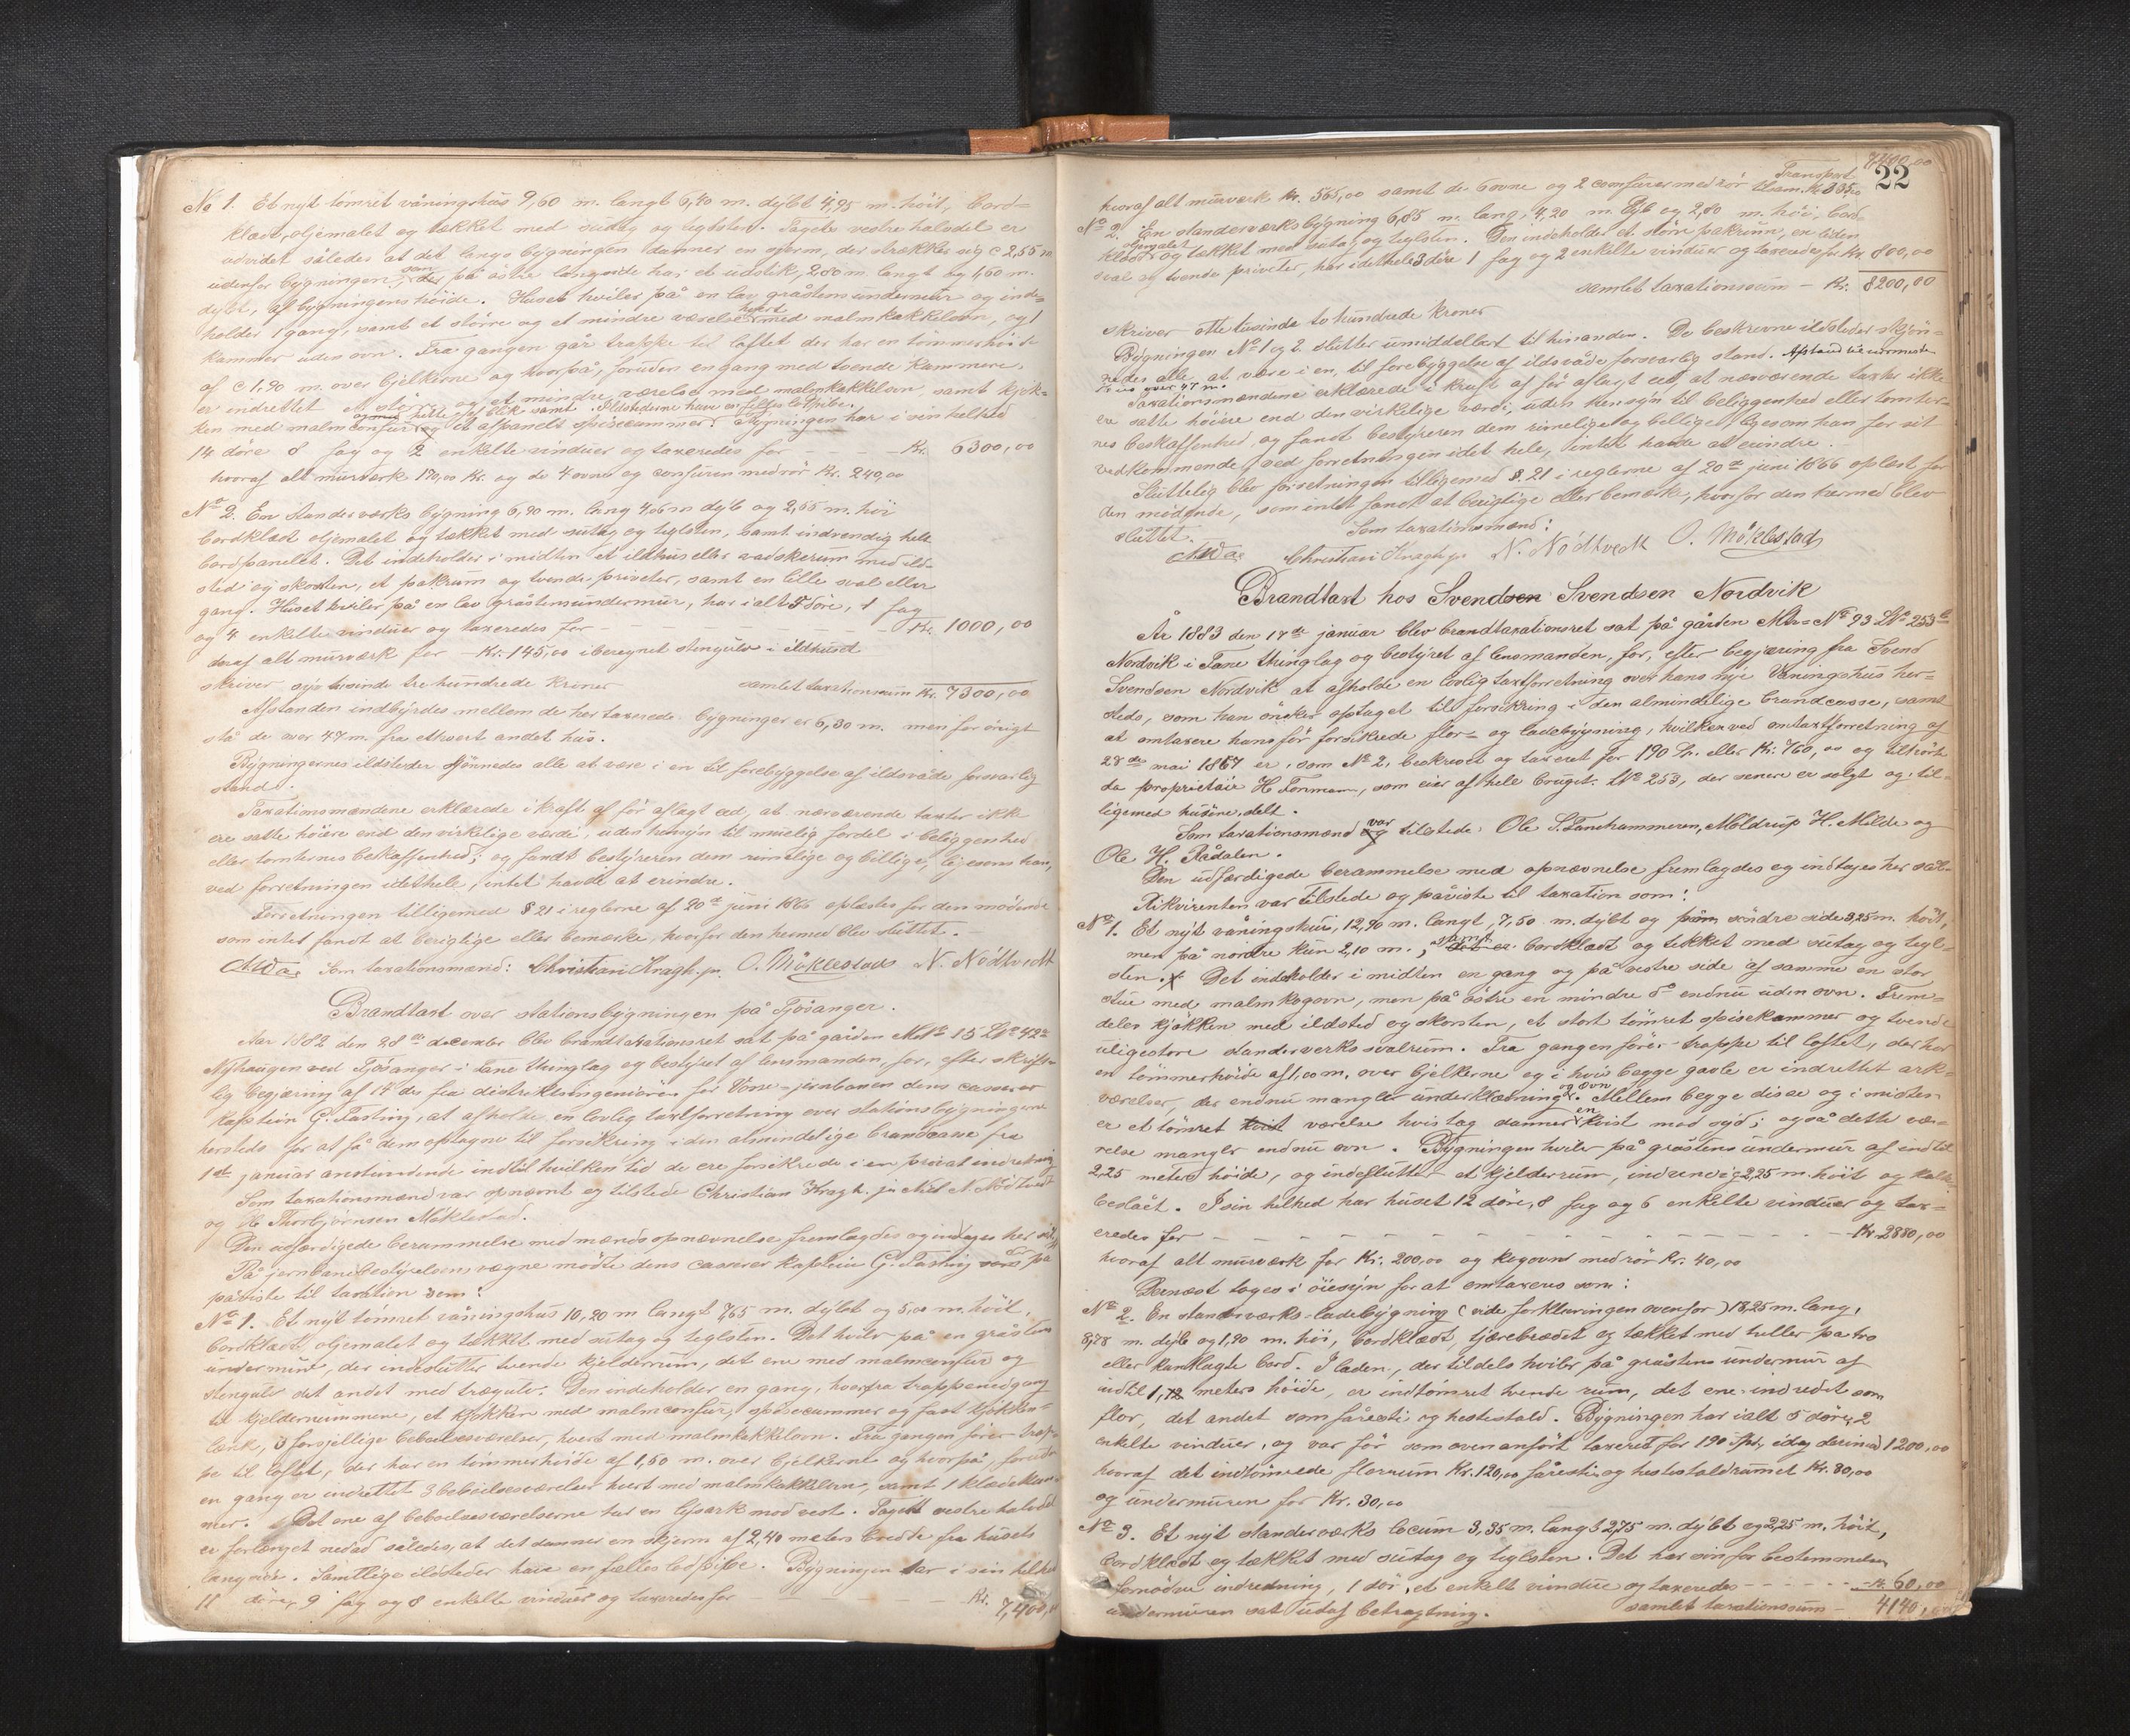 No 1. Et nyt tømret våningshus 9,60 m. langt 6,40 m. dybt 4,95 m. høit, bord=
klædt, oljemalet og tækket med sutag og teglsten. Tagets vestre halvdel er
udvidet således at det langs bygningen danner en skjerm, der strækker sig c 2,55 m
udenfor bygningen, som på østre langside har et udstik, 2,80 m. langt og 1,60 m.
dybt, af bygningens høide. Huset hviler på en lav gråstensundermur og inde=
holder 1 gang, samt et større og et mindre værelse hvert med malmkakkelovn, og 1
kammer uden ovn. Fra gangen går trappe til loftet der har en tømmerhøide
af c 1,90 m. over bjelkerne og hvorpå, foruden en gang med tvende kammere,
er indrettet et større og et mindre værelse med malmkakkelovn, samt kjøk=
ken med malmcomfur og et afpanelt spisecammer. Ildstederne have en fælles ledpibe. Bygningen har i sin helhed
14 døre 8 fag og 2 enkelte vinduer og taxeredes for - - - Kr. 6300,00
hvoraf alt murværk 170,00 Kr. og de 4 ovne og comfuren med rør Kr. 240,00
No 2. En standerværks bygning 6,90 m. lang 4,06 m dyb og 2,55 m. høi
bordklædt oljemalet og tækket med sutag og teglsten, samt indvendig helt
bordpanelet. Det indeholder i midten et ildhus eller vaskerum med ild=
sted og skorsten, et pakrum og tvende priveter, samt en lille sval eller
gang. Huset hviler på en lav gråstensundermur, har ialt 5 døre, 1 fag
og 4 enkelte vinduer og taxeredes for - - - Kr. 1000,00
deraf alt murværk for - Kr. 145,00 iberegnet stengulv i ildhuset
skriver syv tusinde tre hundrede kroner samlet taxationssum Kr. 7300,00
Afstanden indbyrdes mellem de her taxerede bygninger er 6,30 m. men for øvrigt
stå de over 47 m. fra ethvert andet hus.
Bygningernes ildsteder skjønnedes alle at være i en til forebyggelse af ildsvåde forsvarlig
stand.
Taxationsmændene erklærede i kraft af før aflagt ed, at nærværende taxter ikke
ere satte høiere end den virkelige værdi, uden hensyn til muelig fordel i beliggenhed
eller tomternes beskaffenhed; og fandt bestyreren dem rimelige og billige, ligesom han,
ved forretningen idethele, intet havde at erindre.
Forretningen tilligemed § 21 i reglerne af 20de juni 1866 oplæstes for den mødende
som intet fandt at berigtige eller bemærke, hvorfor den hermed blev sluttet. -
Som taxationsmænd: Christian Kragh jr. O. Møklestad N. Nødtvedt
Brandtaxt over stationsbygningen på Fjøsanger.
Aar 1882 den 28de december blev brandtaxationsret sat på gården Mtr No 15 LNo 42
Nyhaugen ved Fjøsanger i Fane thinglag og bestyret af lensmanden, for, efter skrift=
lig begjæring af 14de ds fra distriktsingeniøren for Vosse-jernbanen dens casserer
kaptein G. Fasting, at afholde en lovlig taxtforretning over stationsbygningerne
hersteds for at få dem optagne til forsikring i den almindelige brandcasse fra
1ste januar anstundende indtil hvilken tid de ere forsikrede i en privat indretning
Som taxationsmænd var opnævnt og tilstede Christian Kragh jr. Nils N. Nødtvedt
og O. Thorbjørnsen Møklestad.
Den udfærdigede berammelse med mændsopnævnelse fremlagdes og indtages her
På jernbanebestyrelsens vegne mødte dens casserer kaptein G. Fasting
påviste til taxation som:
No 1. Et nyt tømret våningshus 10,20 m langt 7,65 m. dybt og 5,00 m. høit,
bordklædt, oljemalet og tækket med sutag og teglsten. Det hviler på en gråstens
undermur, der indeslutter tvende kjelderrum, det ene med malmcomfur og
stengulv det andet med trægulv. Den indeholder en gang, hvorfra trappenedgang
til kjelderrummene, et kjøkken med malmcomfur, spisecammer og fast kjøkken=
bænk, 3 forskjellige beboelsesværelser, hvert med malmkakkelovn. Fra gangen fører trap=
pe til loftet, der har en tømmerhøide af 1,50 m. over bjelkerne og hvorpå, foruden
en gang er indrettet 3 beboelsesværelser hvert med malmkakkelovn, samt 1 klædekam=
mer. Det ene af beboelsesværelserne har en lysark mod vest. Tagets vestre halvdel
er forlænget nedad således, at det danner en skjerm af 2,40 meters bredde fra husets
langside. Samtlige ildsteder have en fælles ledpibe. Bygningen har i sin helhed
11 døre, 9 fag og 8 enkelte vinduer og taxeredes for - - - Kr. 7,400,00
22
Transport 7400,00
hvoraf alt murværk Kr. 565,00 samt de 6 ovne og 2 comfurer med rør tilsam. Kr 335,00
No 2. En standerværksbygning 6,85 m. lang, 4,20 m. dyb og 2,80 m. høi, bord=
klædt, oljemalet og tækket med sutag og teglsten. Den indeholder et større pakrum, en liden
sval og tvende priveter, har i det hele 3 døre 1 fag og 2 enkelte vinduer og taxeredes for Kr. 800,00
samlet taxationssum - Kr. 8200,00
skriver otte tusinde to hundrede kroner
Bygningen No 1 og 2 slutter umiddelbart til hinanden. De beskrevne ildsteder skjøn=
nedes alle at være i en, til forebyggelse af ildsvåde forsvarlig stand. Afstand til nærmeste
hus over 47 m.
Taxationsmændene erklærede i kraft af før aflagt ed, at nærværende taxter ikke
ere satte høiere end den virkelige værdi, uden hensyn til beliggenhed eller tomter=
nes beskaffenhed, og fandt bestyreren dem rimelige og billige, ligesom han for sit
vedkommende, ved forretningen idet hele, intet havde at erindre.
Sluttelig blev forretningen tilligemed §. 21 i reglerne af 20de juni 1866 oplæst for
den mødende, som intet fandt at berigtige eller bemærke, hvorfor den hermed blev
sluttet. Som taxationsmænd:
Christian Kragh jr. N. Nødtvedt O. Møklestad
Brandtaxt hos Svendsen Svendsen Nordvik
År 1883 den 17de januar blev brandtaxationsret sat på gården Mtr= No 93 LNo 253
Nordvik i Fane thinglag og bestyret af lensmanden, for, efter begjæring fra Svend
Svendsen Nordvik at afholde en lovlig taxtforretning over hans nye Våningshus her=
steds, som han ønsker optaget til forsikring i den almindelige brandcasse, samt
at omtaxere hans før forsikrede flor- og ladebygning, hvilken ved omtaxtforretning af
28de mai 1867 er, som No 2, beskrevet og taxeret for 190 Sp. eller Kr: 760,00 og tilhørte
da proprietair H. Formann, som eier af hele bruget LNo 253, der senere er solgt og til=
ligemed husene, delt.
Som taxationsmænd var tilstede: Ole S. Fanehammeren, Møldrup H. Milde og
Ole H. Rådalen.
Den udfærdigede berammelse med opnævnelse fremlagdes og indtages her
Rikvirenten var tilstede og påviste til taxation som:
No 1. Et nyt våningshus, 12,90 m. langt, 7,50 m. dybt og på søndre side 3,25 m. høit,
men på nordre kun 2,10 m., bordklædt og tækket med sutag og tegl=
sten. Det indeholder i midten en gang og på vestre side af samme en stor
stue med malmkogovn, men på østre en mindre do endnu uden ovn. Frem=
deles kjøkken med ildsted og skorsten, et stort tømret spisekammer og tvende
uligestore standerverkssvalrum. Fra gangen fører trappe til loftet, der har
en tømmerhøide af 1,00 m. over bjelkerne og i hvis begge gavle er indrettet ark=
værelser, der endnu mangler underklædning og ovn. Mellem begge disse og i midten
er et tømret værelse hvis tag danner en kvist mod syd; også dette væ=
relse mangler endnu ovn. Bygningen hviler på gråstens undermur af indtil
2,25 meters høide, og indeslutter et kjelderrum, indvendig 2,25 m. høit og kalk=
beslåt. I sin helhed har huset 12 døre, 8 fag og 6 enkelte vinduer og tax=
eredes for - - - Kr. 2880,00
hvoraf alt murværk for Kr. 200,00 og kogovn med rør Kr. 40,00
Dernæst toges i øiesyn for at omtaxeres som:
No 2. En standerværks-ladebygning (vide forklaringen ovenfor) 18,25 m. lang,
8,78 m. dyb og 1,90 m. høi, bordklædt, tjærebrædet og tækket med heller på tro
eller kantlagte bord. I laden, der tildels hviler på gråstens undermur af
indtil 1,72 meters høide, er indtømret tvende rum, det ene indredet som
flor, det andet som fåresti og hestestald. Bygningen har ialt 5 døre, 2
enkelte vinduer, og var før som ovenanført taxeret for 190 Spd, idag derimod 1200,00
hvoraf det indtømrede florrum Kr. 120,00 fåresti og hestestaldrummet Kr. 80,00
og undermuren for Kr. 30,00
No 3. Et nyt standerværks locum 3,35 m. langt 2,75 m. dybt og 2,25 m. høit,
bordklædt og tækket med sutag og teglsten. Det har sin for bestemmelsen
fornødne indredning, 1 dør, et enkelt vindue og taxeredes - - - Kr. 60,00
undermuren sat udaf betragtning. samlet taxationssum - 4140,00